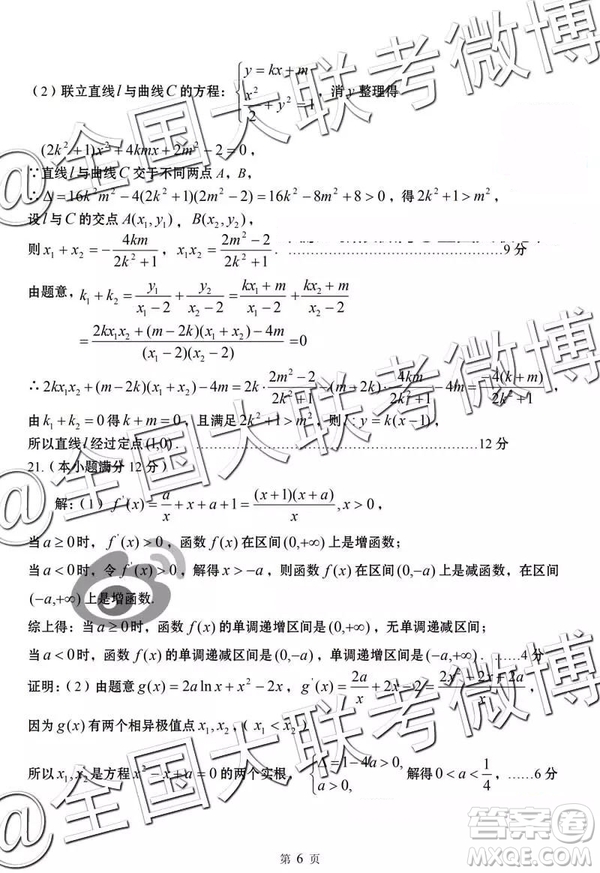 （2）联立直线l与曲线C的方程：{y=kx+m, x²/2+y²=1，消y整理得
(2k²+1)x²+4kmx+2m²−2=0，
∵直线l与曲线C交于不同两点A，B，
∴Δ=16k²m²−4(2k²+1)(2m²−2)=16k²−8m²+8>0，得2k²+1>m²，
设l与C的交点A(x₁,y₁)，B(x₂,y₂)，
则x₁+x₂=−4km/(2k²+1)，x₁x₂=(2m²−2)/(2k²+1)．……9分
由题意，k₁+k₂=y₁/(x₁−2)+y₂/(x₂−2)=(kx₁+m)/(x₁−2)+(kx₂+m)/(x₂−2)
=(2kx₁x₂+(m−2k)(x₁+x₂)−4m)/((x₁−2)(x₂−2))=0
∴2kx₁x₂+(m−2k)(x₁+x₂)−4m=2k·(2m²−2)/(2k²+1)+(m−2k)·4km/(2k²+1)−4m=4(k+m)/(2k²+1)，
由k₁+k₂=0得k+m=0，且满足2k²+1>m²，则l:y=k(x−1)，
所以直线l经过定点(1,0)．……12分
21.（本小题满分12分）
解：（1）f'(x)=a/x+x+a+1=(x+1)(x+a)/x,x>0，
当a≥0时，f'(x)>0，函数f(x)在区间(0,+∞)上是增函数；
当a<0时，令f'(x)>0，解得x>−a，则函数f(x)在区间(0,−a)上是减函数，在区间
(−a,+∞)上是增函数．
综上得：当a≥0时，函数f(x)的单调递增区间是(0,+∞)，无单调递减区间；
当a<0时，函数f(x)的单调递减区间是(0,−a)，单调递增区间是(−a,+∞)．……4分
证明：（2）由题意g(x)=2alnx+x²−2x，g'(x)=2a/x+2x−2=(2x²−2x+2a)/x，
因为g(x)有两个相异极值点x₁,x₂，(x₁<x₂)
所以x₁,x₂是方程x²−x+a=0的两个实根，{Δ=1−4a>0, a>0,解得0<a<1/4，……6分
第 6 页
@全国大联考微博
@全国大联考微博
@全国大联考微博
答案圈
MXQE.COM